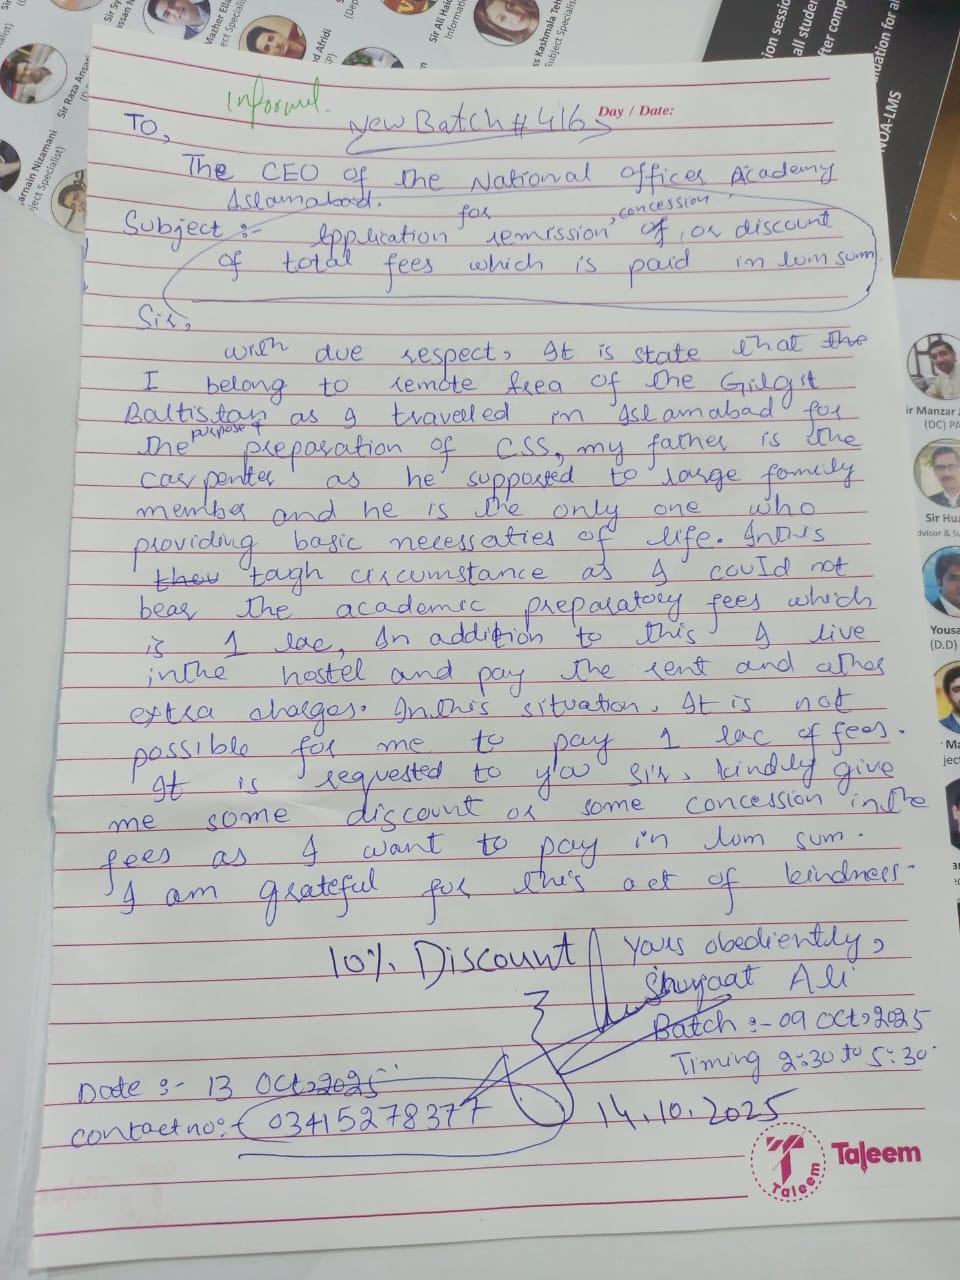 Informed.
New Batch # 416
Day / Date:
To,
The CEO of the National officer Academy
Islamabad.
Subject :- Application for remission of, concession, or discount
of total fees which is paid in lum sum.
Sir,
with due respect, It is state that the
I belong to remote Area of the Gilgit
Baltistan as I travelled in Islamabad for
the purpose of preparation of CSS, my father is the
carpenter as he supported to large family
member and he is the only one who
providing basic necessaties of life. In this
tagh circumstance as I could not
bear the academic preparatory fees which
is 1 lac, In addition to this I live
in the hostel and pay the rent and other
extra charges. In this situation. It is not
possible for me to pay 1 lac of fees.
It is requested to you sir, kindly give
me some discount or some concession in the
fees as I want to pay in lum sum.
I am grateful for this act of kindness.
10% Discount
Yours obediently,
Shujaat Ali
Batch :- 09 Oct, 2025
Timing 2:30 to 5:30
Date :- 13 Oct, 2025
contact no:- 03415278377
14.10.2025
Taleem
Taleem
Sir Raza Ansari
Sir Ali Haider
ss Kashmala Teh
Subject Specialis
d Afridi
arnain Nizamani
ject Specialist)
tion session
all studen
fter comp
uation for al
NOA-LMS
ir Manzar
(DC) PA
Sir Hu
dvisor & Su
Yousa
(D.D)
Ma
ject